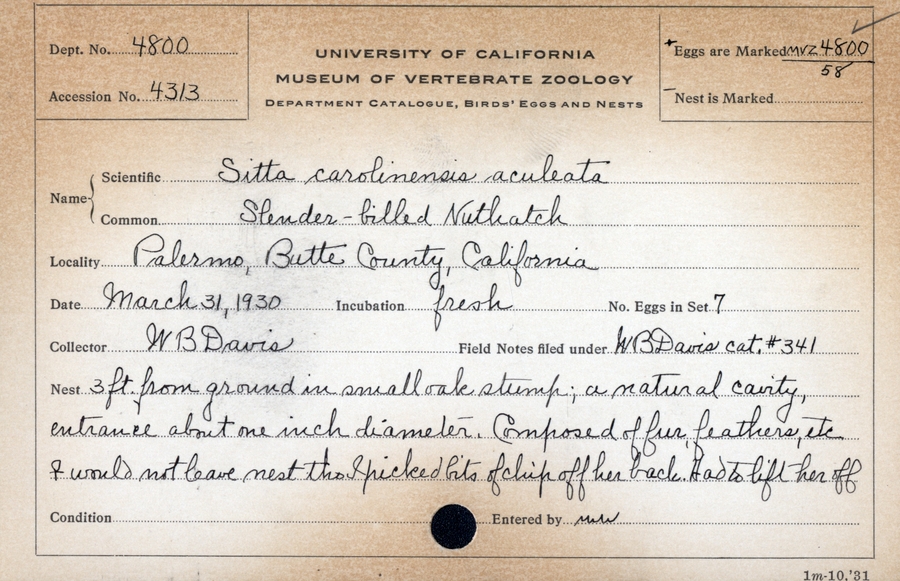 Dept. No. 4800
Accession No. 4313
UNIVERSITY OF CALIFORNIA
MUSEUM OF VERTEBRATE ZOOLOGY
DEPARTMENT CATALOGUE, BIRDS' EGGS AND NESTS
+ Eggs are Marked MVZ 4800
58
- Nest is Marked
Name
Scientific Sitta carolinensis aculeata
Common Slender-billed Nuthatch
Locality Palermo, Butte County, California
Date March 31, 1930 Incubation fresh No. Eggs in Set 7
Collector W B Davis Field Notes filed under W B Davis cat. #341
Nest 3 ft. from ground in small oak stump; a natural cavity,
entrance about one inch diameter. Composed of fur, feathers, etc.
♀ would not leave nest tho I picked bits of chip off her back. Had to lift her off
Condition Entered by
1m-10,'31